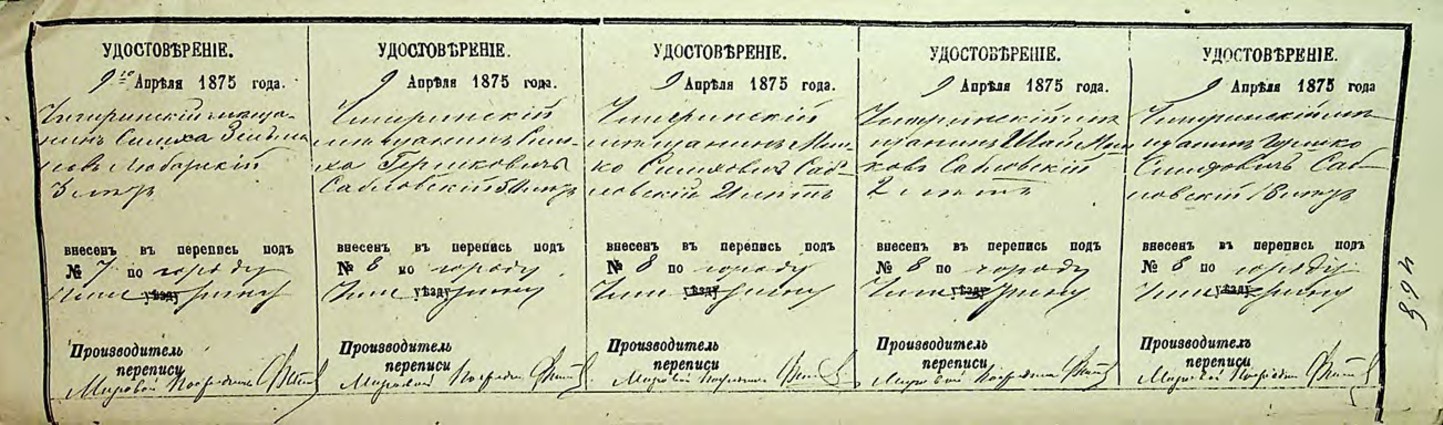 УДОСТОВѢРЕНІЕ.
9го Апрѣля 1875 года.
Чигиринскій мѣща-
нинъ Симха Зельма-
новъ Любарскій
3 лѣтъ
внесенъ въ перепись подъ
№ 7 по городу
Чигирину
уѣзду
Производитель
переписи
Мировой Посредникъ
УДОСТОВѢРЕНІЕ.
9 Апрѣля 1875 года.
Чигиринскій
мѣщанинъ Сим-
ха Гершковичъ
Сабловскій 50 лѣтъ
внесенъ въ перепись подъ
№ 8 по городу
Чигирину
уѣзду
Производитель
переписи
Мировой Посредникъ
УДОСТОВѢРЕНІЕ.
9 Апрѣля 1875 года.
Чигиринскій
мѣщанинъ Мош-
ко Симховичъ Саб-
ловскій 21 лѣтъ
внесенъ въ перепись подъ
№ 8 по городу
Чигирину
уѣзду
Производитель
переписи
Мировой Посредникъ
УДОСТОВѢРЕНІЕ.
9 Апрѣля 1875 года.
Чигиринскій мѣ-
щанинъ Шая Мош-
ковъ Сабловскій
2 лѣтъ
внесенъ въ перепись подъ
№ 8 по городу
Чигирину
уѣзду
Производитель
переписи
Мировой Посредникъ
УДОСТОВѢРЕНІЕ.
9 Апрѣля 1875 года
Чигиринскій мѣ-
щанинъ Гершко
Симховичъ Саб-
ловскій 18 лѣтъ
внесенъ въ перепись подъ
№ 8 по городу
Чигирину
уѣзду
Производитель
переписи
Мировой Посредникъ
468